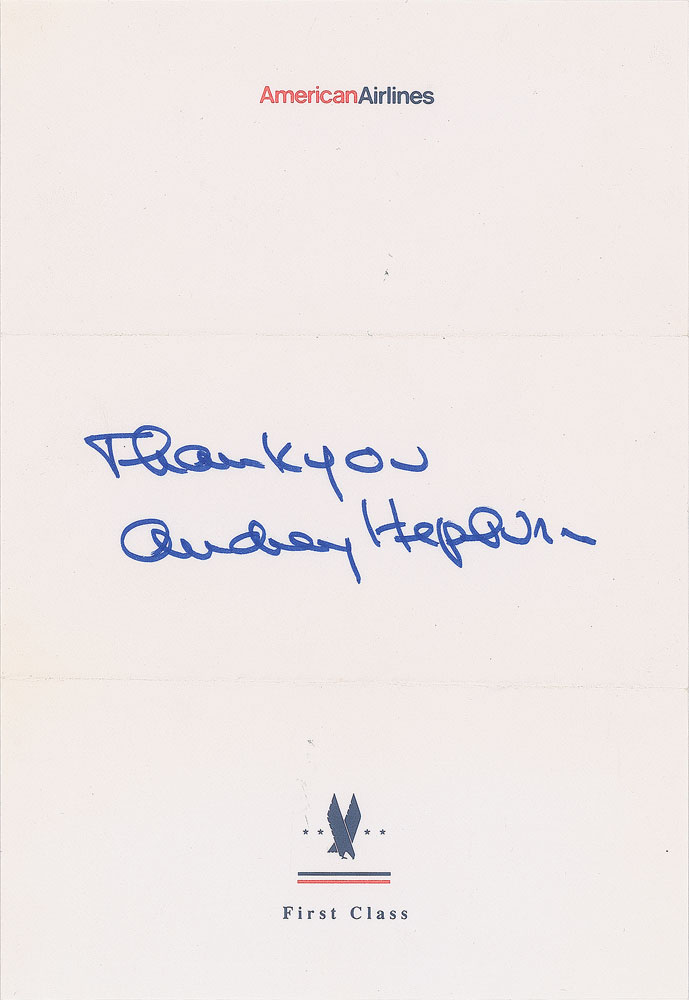 AmericanAirlines
Thank you
Audrey Hepburn
First Class